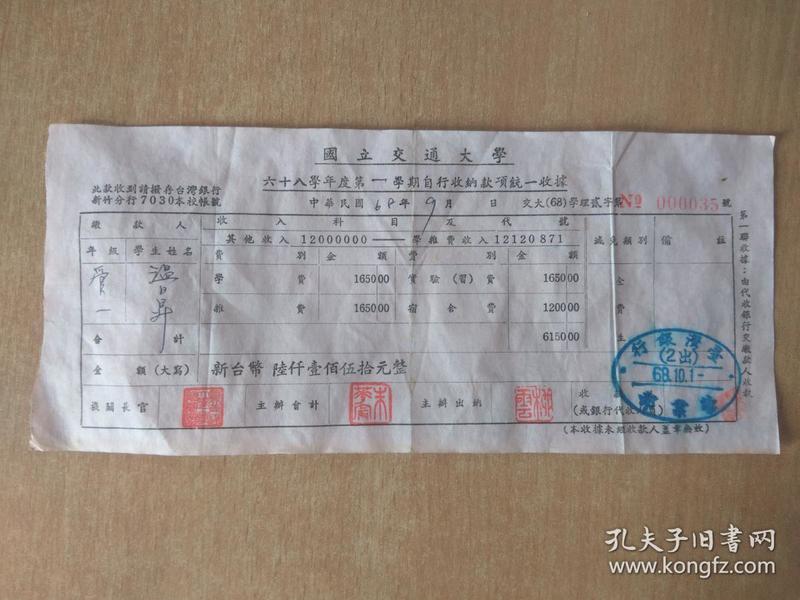 國立交通大學
六十八學年度第一學期自行收納款項統一收據
此款收到請撥存台灣銀行
新竹分行7030本校帳號
中華民國68年9月 日
交大(68)學理貳字第№ 000035號
繳款人
收入科目及代號
年級 學生姓名
其他收入 12000000 —— 學雜費收入 12120871
減免類別 備註
費別 金額 費別 金額
管一 溫日昇
學費 165000 實驗(習)費 165000 全
雜費 165000 宿舍費 120000 費
合計 615000 生
金額(大寫) 新台幣 陸仟壹佰伍拾元整
機關長官 主辦會計 主辦出納 收款
(或銀行代收
(本收據未經收款人蓋章無效)
第一聯收據：由代收銀行交繳款人收款
臺灣銀行
(出2)
68.10.1
營業
孔夫子旧书网
www.kongfz.com